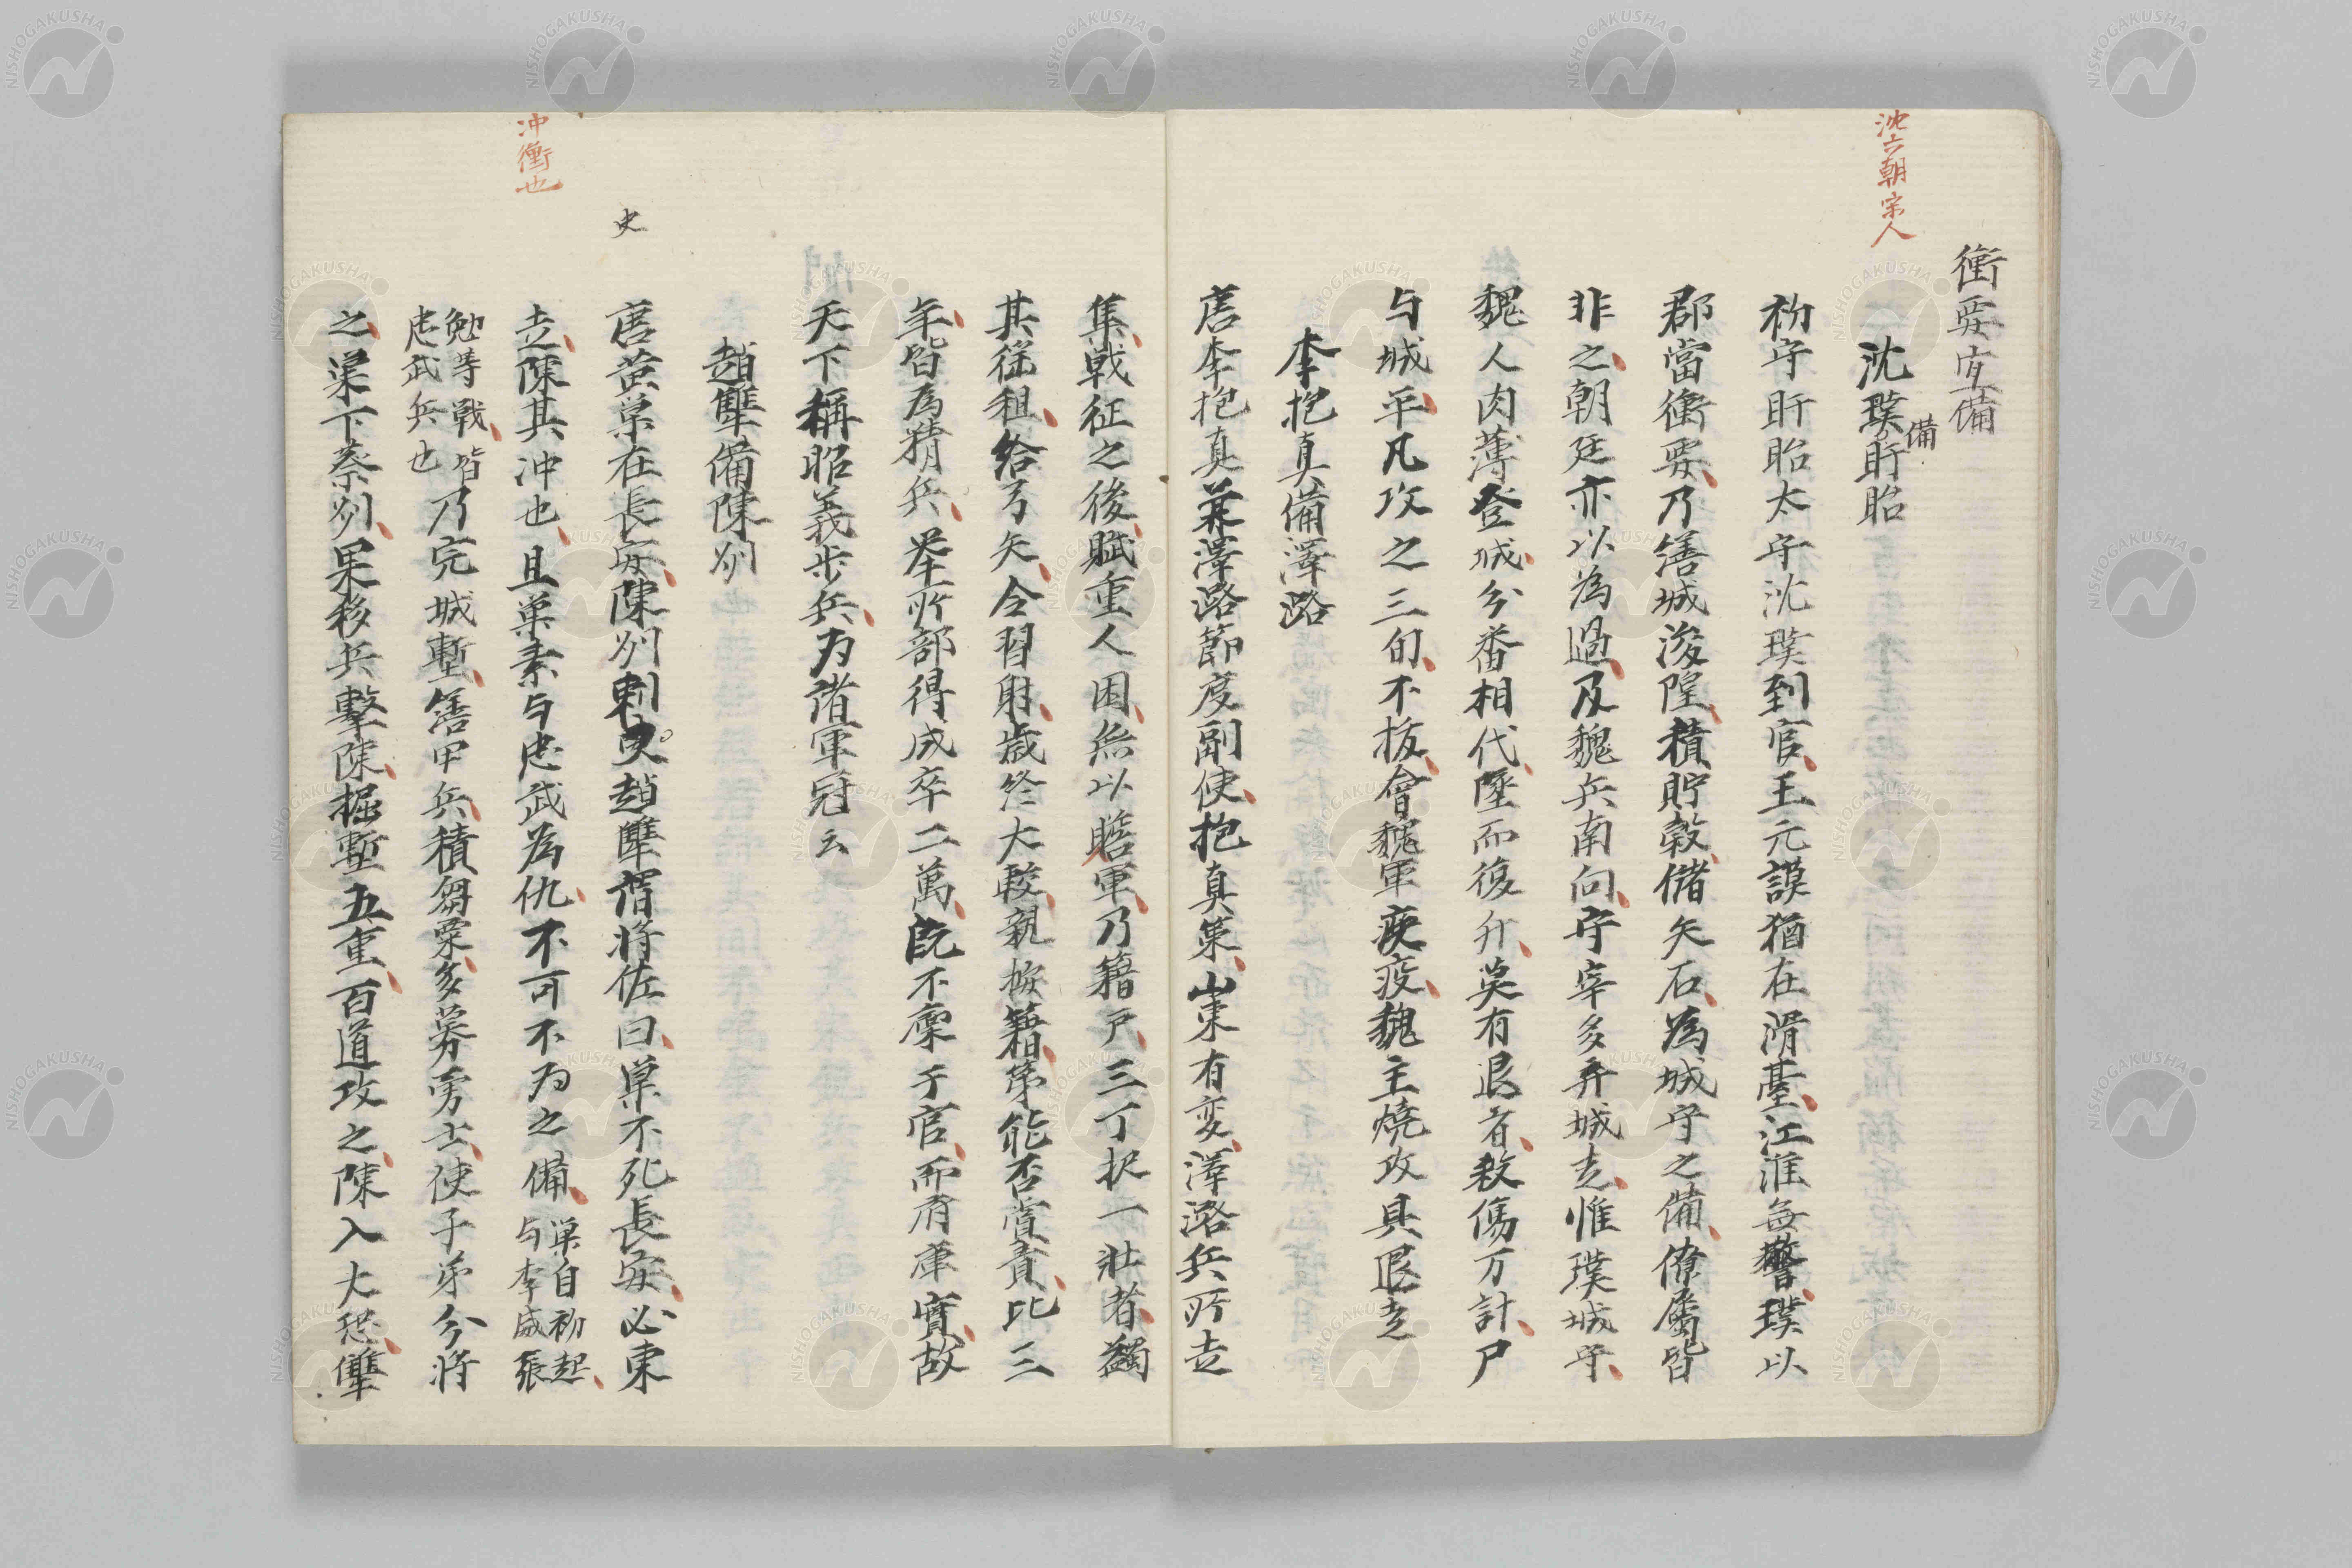 沈六朝宋人
衝要宜備
沈璞備盱眙
初守盱眙太守沈璞到官、王元謨猶在滑臺、江淮無警、璞以
郡當衝要、乃繕城浚隍、積貯穀、儲矢石、為城守之備、僚屬皆
非之、朝廷亦以為過、及魏兵南向、守宰多弃城走、惟璞城守、
魏人肉薄登城、分番相代、墜而復升、莫有退者、殺傷万計、尸
与城平、凡攻之三旬、不拔、會魏軍疾疫、魏主燒攻具退走
李抱真備澤潞
唐李抱真兼澤潞節度副使、抱真策、山東有変、澤潞兵所走
集、戦征之後、賦重人困、無以贍軍、乃籍戸、三丁択一壮者、蠲
其徭租、給弓矢、令習射、歳終大較、親按籍、第能否賞責、比三
年、皆為精兵、舉所部得成卒二萬、既不廩于官、而府庫實、故
天下稱昭義歩兵、为諸軍冠云
趙犨備陳州
史
唐黄巣在長安、陳州刺史趙犨謂将佐曰、巣不死長安、必東
冲衝也
走、陳其冲也、且巣素与忠武為仇、不可不为之備、巣自初起、与李威張
勉等戦、皆忠武兵也乃完城塹、繕甲兵、積芻粟、多募勇士、使子弟分将
之、巣下蔡州、果移兵擊陳、掘塹五重、百道攻之、陳入大恐、犨